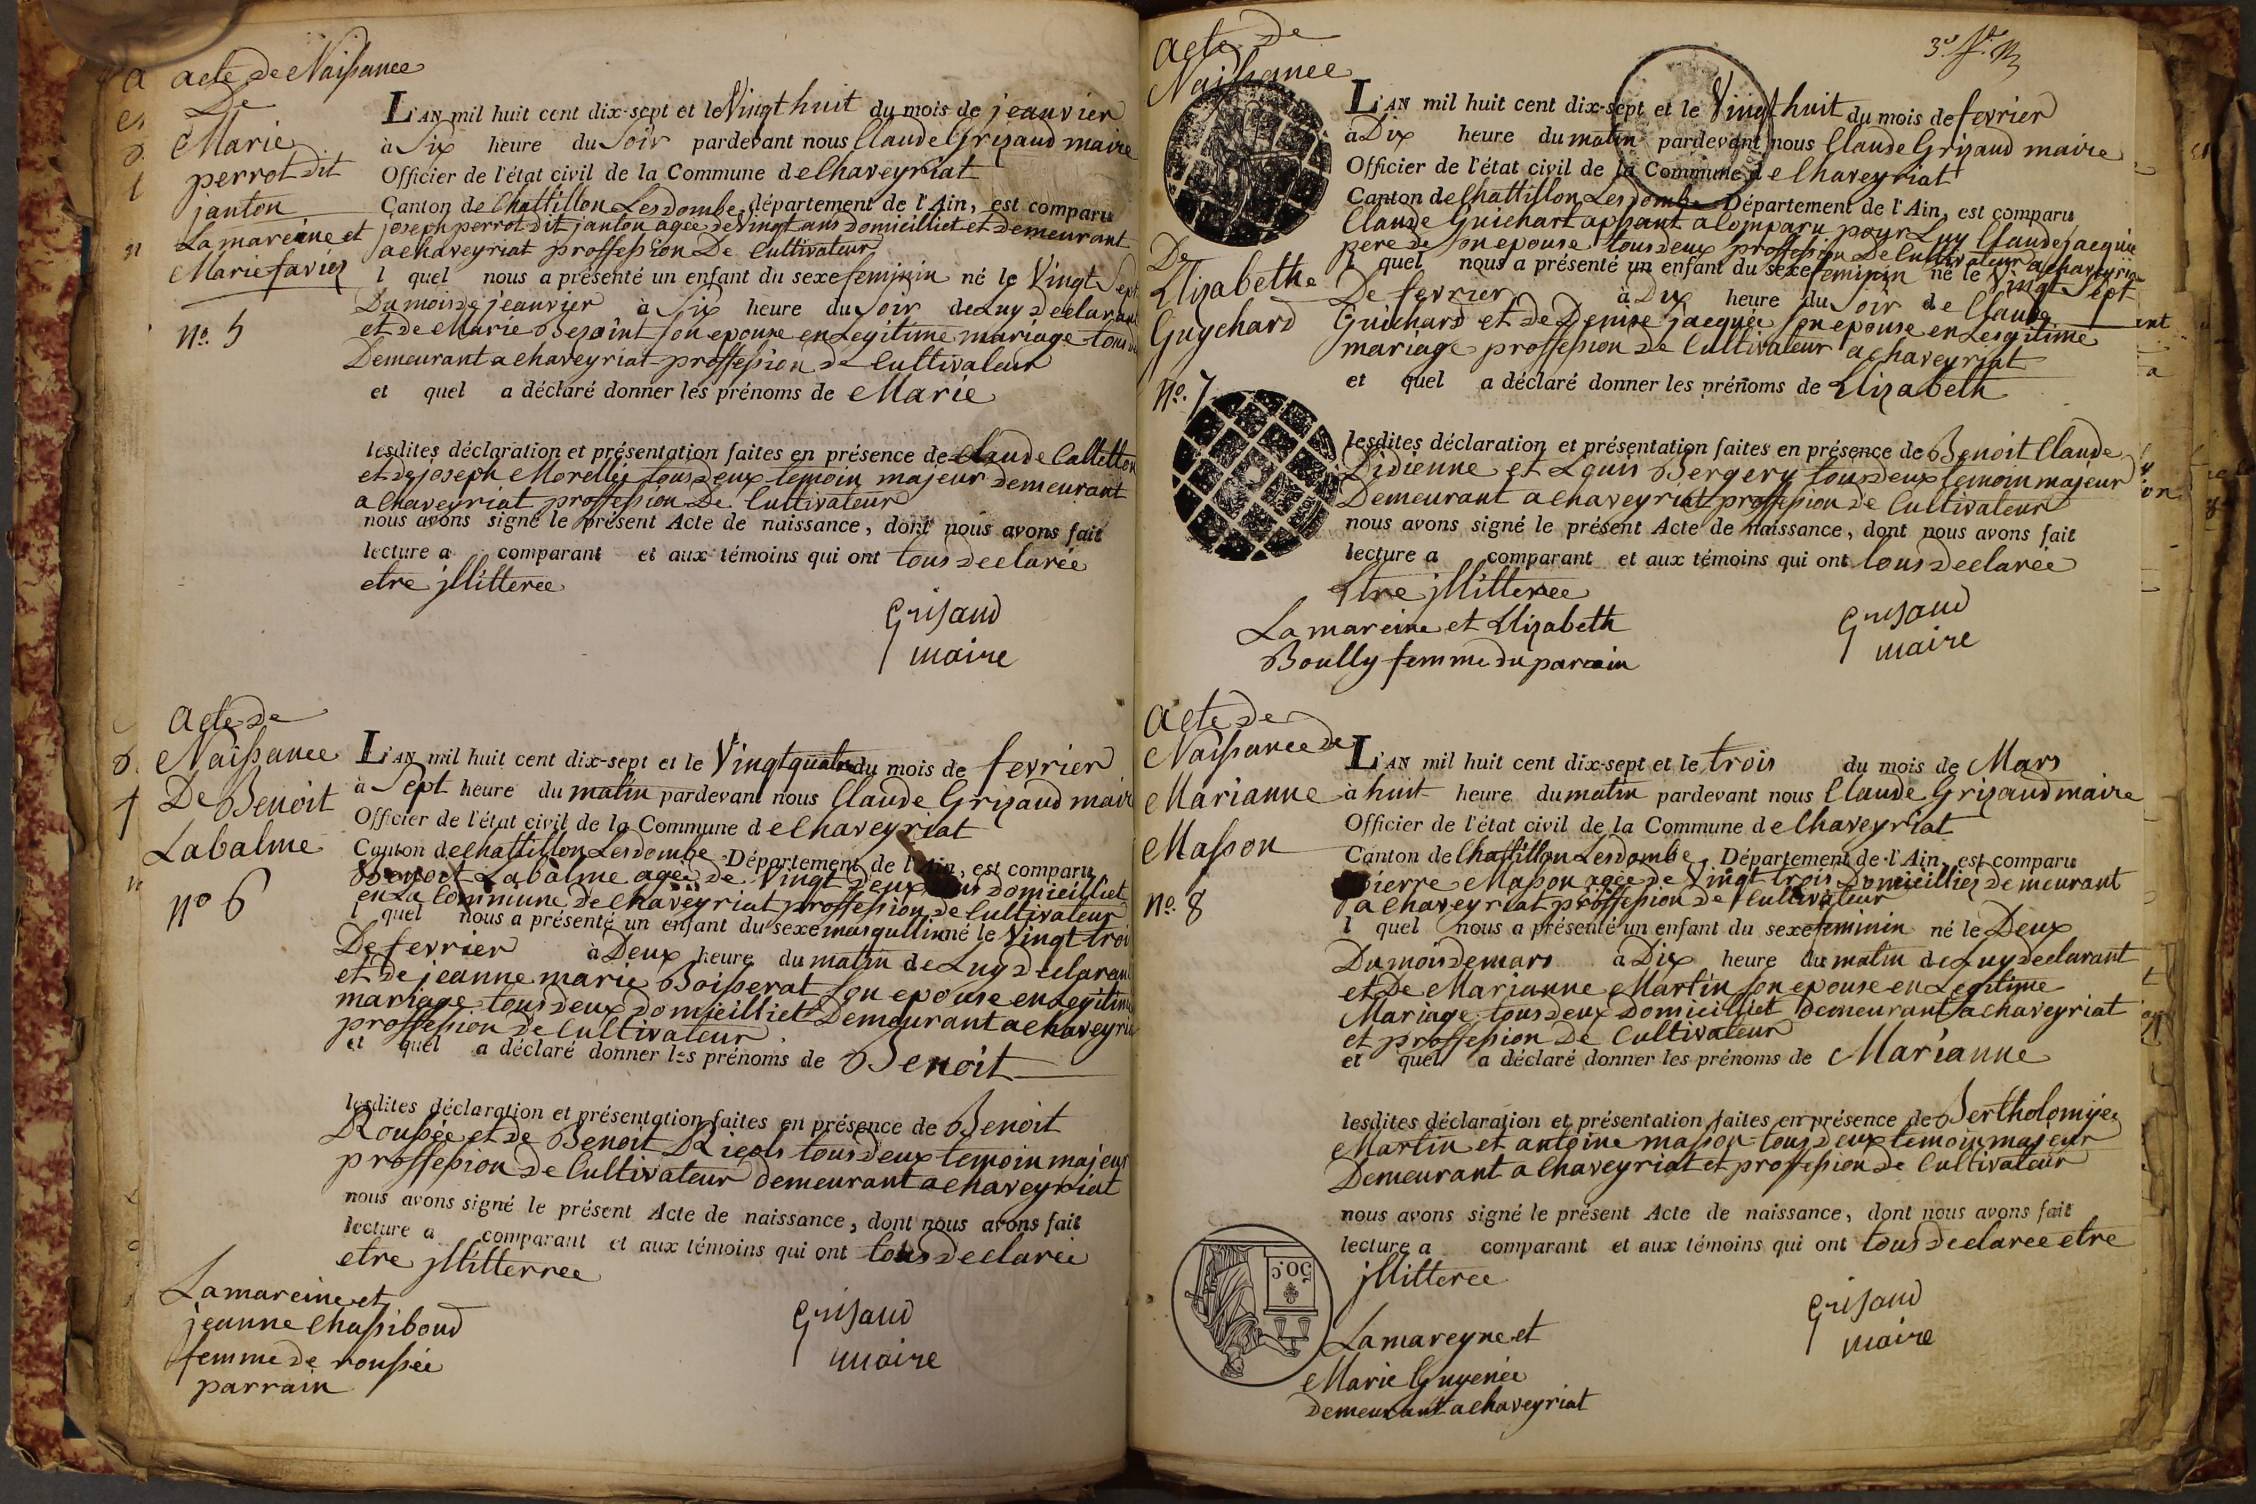 acte de Naissance
De
Marie
perrot dit
janton
La mareine et
Marie favier
no. 5
L'AN mil huit cent dix-sept et le Vingt huit du mois de jeanvier
à Six heure du Soir pardevant nous Claude Grisaud maire
Officier de l'état civil de la Commune de Chaveyriat
Canton de Chattillon Lesdombe, département de l'Ain, est comparu
joseph perrot dit janton agée de Vingt ans domicilliet et demeurant
a chaveyriat proffession De Cultivateur
l quel nous a présenté un enfant du sexe feminin né le Vingt Sept
Du mois de jeanvier à Six heure du Soir de Luy declarant
et de Marie Besoint son epouse en Legitime mariage tous
Demeurant a chaveyriat proffession de Cultivateur
et quel a déclaré donner les prénoms de Marie
lesdites déclaration et présentation faites en présence de Claude Cattetton
et de joseph Morellet tous deux temoin majeur demeurant
a Chaveyriat proffession De Cultivateur
nous avons signé le présent Acte de naissance, dont nous avons fait
lecture a comparant et aux témoins qui ont tous declarée
etre jllitteree
Grisaud
maire
Acte de
Naissance
De Benoit
Labalme
no 6
L'AN mil huit cent dix-sept et le Vingt quatre du mois de fevrier
à Sept heure du matin pardevant nous Claude Grisaud mair
Officier de l'état civil de la Commune de Chaveyriat
Canton de Chattillon Lesdombe Département de l'Ain, est comparu
Benoit Labalme agée de Vingt deux ans domicilliet
en La Commune de Chaveyriat proffession de Cultivateur
l quel nous a présenté un enfant du sexe masqullin né le Vingt troi
De fevrier à Deux heure du matin de Luy declarant
et de jeanne marie Boisserat son epouse en Legitime
mariage tous deux domicilliet Demeurant a chaveyria
proffession de Cultivateur
et quel a déclaré donner les prénoms de Benoit
lesdites déclaration et présentation faites en présence de Benoit
Roussée et de Benoit Riols tous deux temoin majeur
proffession de Cultivateur demeurant a chaveyriat
nous avons signé le présent Acte de naissance, dont nous avons fait
lecture a comparant et aux témoins qui ont tous declarée
etre jllitterree
La mareine et
jeanne Chassiboud
femme de roussée
parrain
Grisaud
maire
acte de
Naissance
De
Elisabethe
Guychard
no. 7
L'AN mil huit cent dix-sept et le Vingt huit du mois de fevrier
à Dix heure du matin pardevant nous Claude Grisaud maire
Officier de l'état civil de la Commune de Chaveyriat
Canton de Chattillon Lesdombe Département de l'Ain, est comparu
Claude Guichart apsant a Comparu pour Luy Claude jacquie
pere de son epouse tous deux proffession De Cultivateur a chaveyria
l quel nous a présenté un enfant du sexe feminin né le Vingt Sept
De fevrier à Dix heure du Soir de Claude
Guichard et de Denise jacquée son epouse en Lesgitime
mariage proffession de Cultivateur a chaveyriat
et quel a déclaré donner les prénoms de Elizabeth
lesdites déclaration et présentation faites en présence de Benoit Claude
Didienne et Louis Bergery tous deux temoin majeur
Demeurant a chaveyriat proffession de Cultivateur
nous avons signé le présent Acte de naissance, dont nous avons fait
lecture a comparant et aux témoins qui ont tous declarée
Etre jllitteree
La mareine et Elizabeth
Boully femme du parrain
Grisaud
maire
Acte de
Naissance de
Marianne
Masson
no. 8
L'AN mil huit cent dix-sept et le trois du mois de Mars
à huit heure du matin pardevant nous Claude Grisaud maire
Officier de l'état civil de la Commune de Chaveyriat
Canton de Chattillon Lesdombe, Département de l'Ain, est comparu
pierre Masson agée de Vingt trois Domicilliet demeurant
a Chaveyriat proffession de Cultivateur
l quel nous a présenté un enfant du sexe feminin né le Deux
Du mois de mars à Dix heure du matin de Luy declarant
et De Marianne Martin son epouse en Legitime
Mariage tous deux Domicilliet Demeurant a chaveyriat
et proffession De Cultivateur
et quel a déclaré donner les prénoms de Marianne
lesdites déclaration et présentation faites en présence de Bertholomyée
Martin et antoine masson tous deux temoin majeur
Demeurant a Chaveyriat et proffession de Cultivateur
nous avons signé le présent Acte de naissance, dont nous avons fait
lecture a comparant et aux témoins qui ont tous declaree etre
jllitteree
50.c
La mareyne et
Marie Guyenée
demeurant a chaveyriat
Grisaud
maire